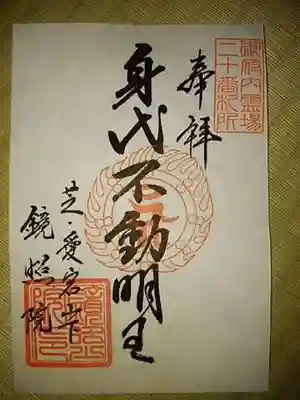 御府内霊場
二十番札所
奉拝
身代不動明王
芝・愛宕山下
鏡照院